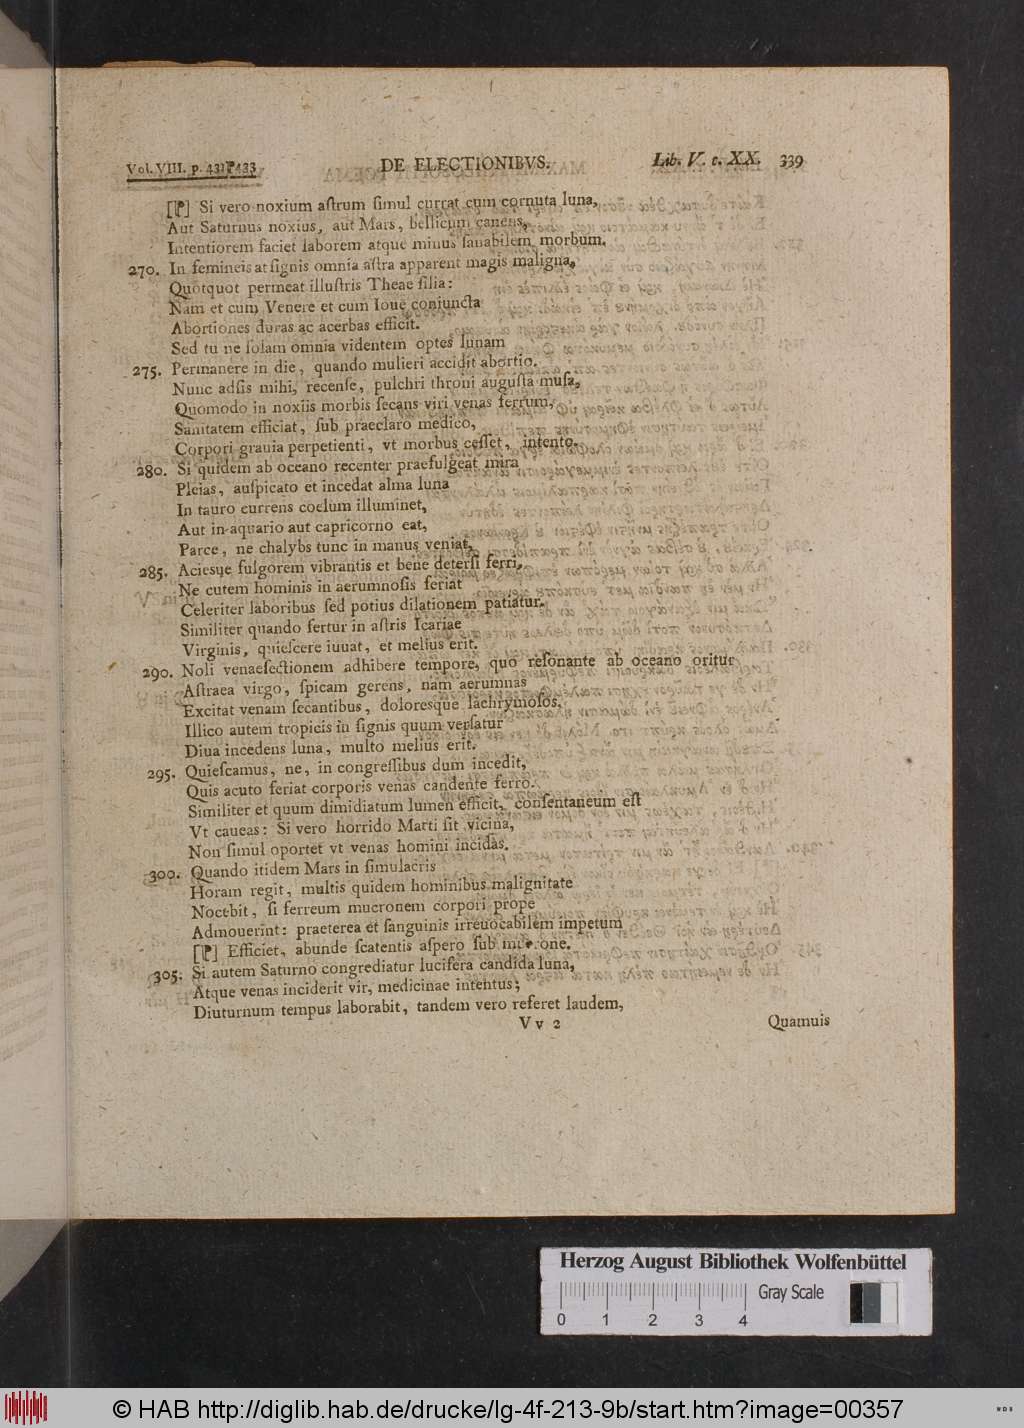 Vol. VIII. p. 432 433 DE ELECTIONIBVS. Lib. V. c. XX. 339
[P] Si vero noxium aſtrum ſimul currat cum cornuta luna,
Aut Saturnus noxius, aut Mars, bellicum canens,
Intentiorem faciet laborem atque minus ſanabilem morbum.
270. In femineis at ſignis omnia aſtra apparent magis maligna,
Quotquot permeat illuſtris Theae filia:
Nam et cum Venere et cum Ioue conjuncta
Abortiones duras ac acerbas efficit.
Sed tu ne ſolam omnia videntem optes lunam
275. Permanere in die, quando mulieri accidit abortio.
Nunc adſis mihi, recenſe, pulchri throni auguſta muſa,
Quomodo in noxiis morbis ſecans viri venas ferrum,
Sanitatem efficiat, ſub praeclaro medico,
Corpori grauia perpetienti, vt morbus ceſſet, intento.
280. Si quidem ab oceano recenter praefulgeat mira
Pleias, auſpicato et incedat alma luna
In tauro currens coelum illuminet,
Aut in aquario aut capricorno eat,
Parce, ne chalybs tunc in manus veniat,
285. Aciesue fulgorem vibrantis et bene deterſi ferri,
Ne cutem hominis in aerumnoſis feriat
Celeriter laboribus ſed potius dilationem patiatur.
Similiter quando fertur in aſtris Icariae
Virginis, quieſcere iuuat, et melius erit.
290. Noli venaeſectionem adhibere tempore, quo reſonante ab oceano oritur
Aſtraea virgo, ſpicam gerens, nam aerumnas
Excitat venam ſecantibus, doloresque lachrymoſos.
Illico autem tropicis in ſignis quum verſatur
Diua incedens luna, multo melius erit.
295. Quieſcamus, ne, in congreſſibus dum incedit,
Quis acuto feriat corporis venas candente ferro.
Similiter et quum dimidiatum lumen efficit, conſentaneum eſt
Vt caueas: Si vero horrido Marti ſit vicina,
Non ſimul oportet vt venas homini incidas.
300. Quando itidem Mars in ſimulacris
Horam regit, multis quidem hominibus malignitate
Nocebit, ſi ferreum mucronem corpori prope
Admouerint: praeterea et ſanguinis irreuocabilem impetum
[P] Efficiet, abunde ſcatentis aſpero ſub mucrone.
305. Si autem Saturno congrediatur lucifera candida luna,
Atque venas inciderit vir, medicinae intentus;
Diuturnum tempus laborabit, tandem vero referet laudem,
V v 2 Quamuis
Herzog August Bibliothek Wolfenbüttel
Gray Scale
0 1 2 3 4
© HAB http://diglib.hab.de/drucke/lg-4f-213-9b/start.htm?image=00357